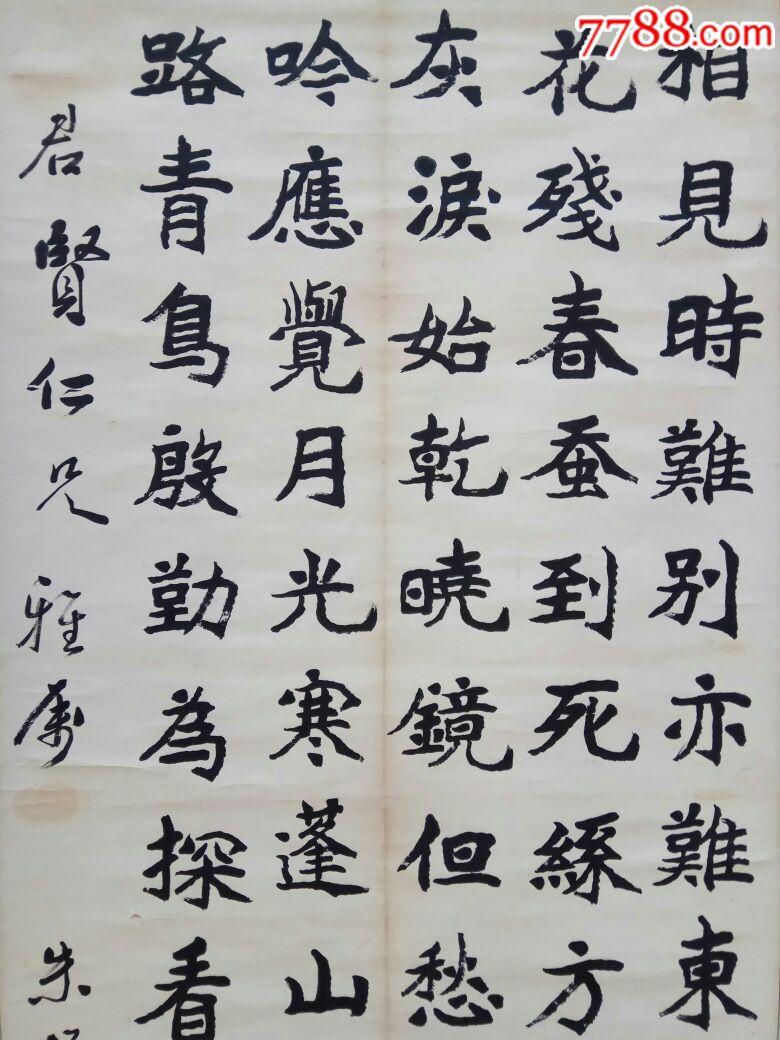 7788.com
相見時難别亦難東
花殘春蚕到死絲方
灰淚始乾曉鏡但愁
吟應覺月光寒蓬山
路青鳥殷勤為探看
君賢仁兄雅属
朱